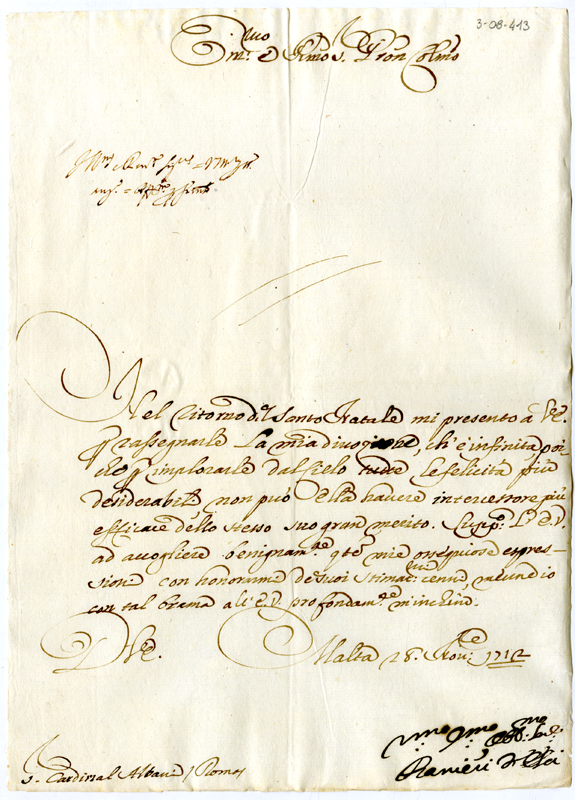 3-08-413
Em.mo e R.mo S. P.ron Col.mo
Nel ritorno del Santo Natale mi presento a V.E.
p rassegnarle la mia divoz.ne, ch'è infinita poi
che p implorarle dal Cielo tutte le felicità più
desiderabili non può Ella havere intercessore più
efficace dello stesso suo gran merito. Supp.co l'E.V.
ad accogliere benignam.te q.te mie ossequiose espres-
sioni con honorarme de suoi stimat.mi cenni, mentre io
con tal brama all'E.V. profondam.te m'inchino.
D V.E. Malta 28. Nov.e 1712
S. Cardinal Albani / Roma
Um.mo
Ranieri d'Elci